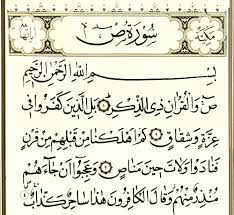 سُورَةُ ص
بِسْمِ اللّٰهِ الرَّحْمٰنِ الرَّحِيمِ
صٓ وَالْقُرْآنِ ذِي الذِّكْرِ بَلِ الَّذِينَ كَفَرُوا فِي
عِزَّةٍ وَشِقَاقٍ كَمْ أَهْلَكْنَا مِنْ قَبْلِهِمْ مِنْ قَرْنٍ
فَنَادَوْا وَلَاتَ حِينَ مَنَاصٍ وَعَجِبُوا أَنْ جَاءَهُمْ
مُنْذِرٌ مِنْهُمْ وَقَالَ الْكَافِرُونَ هٰذَا سَاحِرٌ كَذَّابٌ